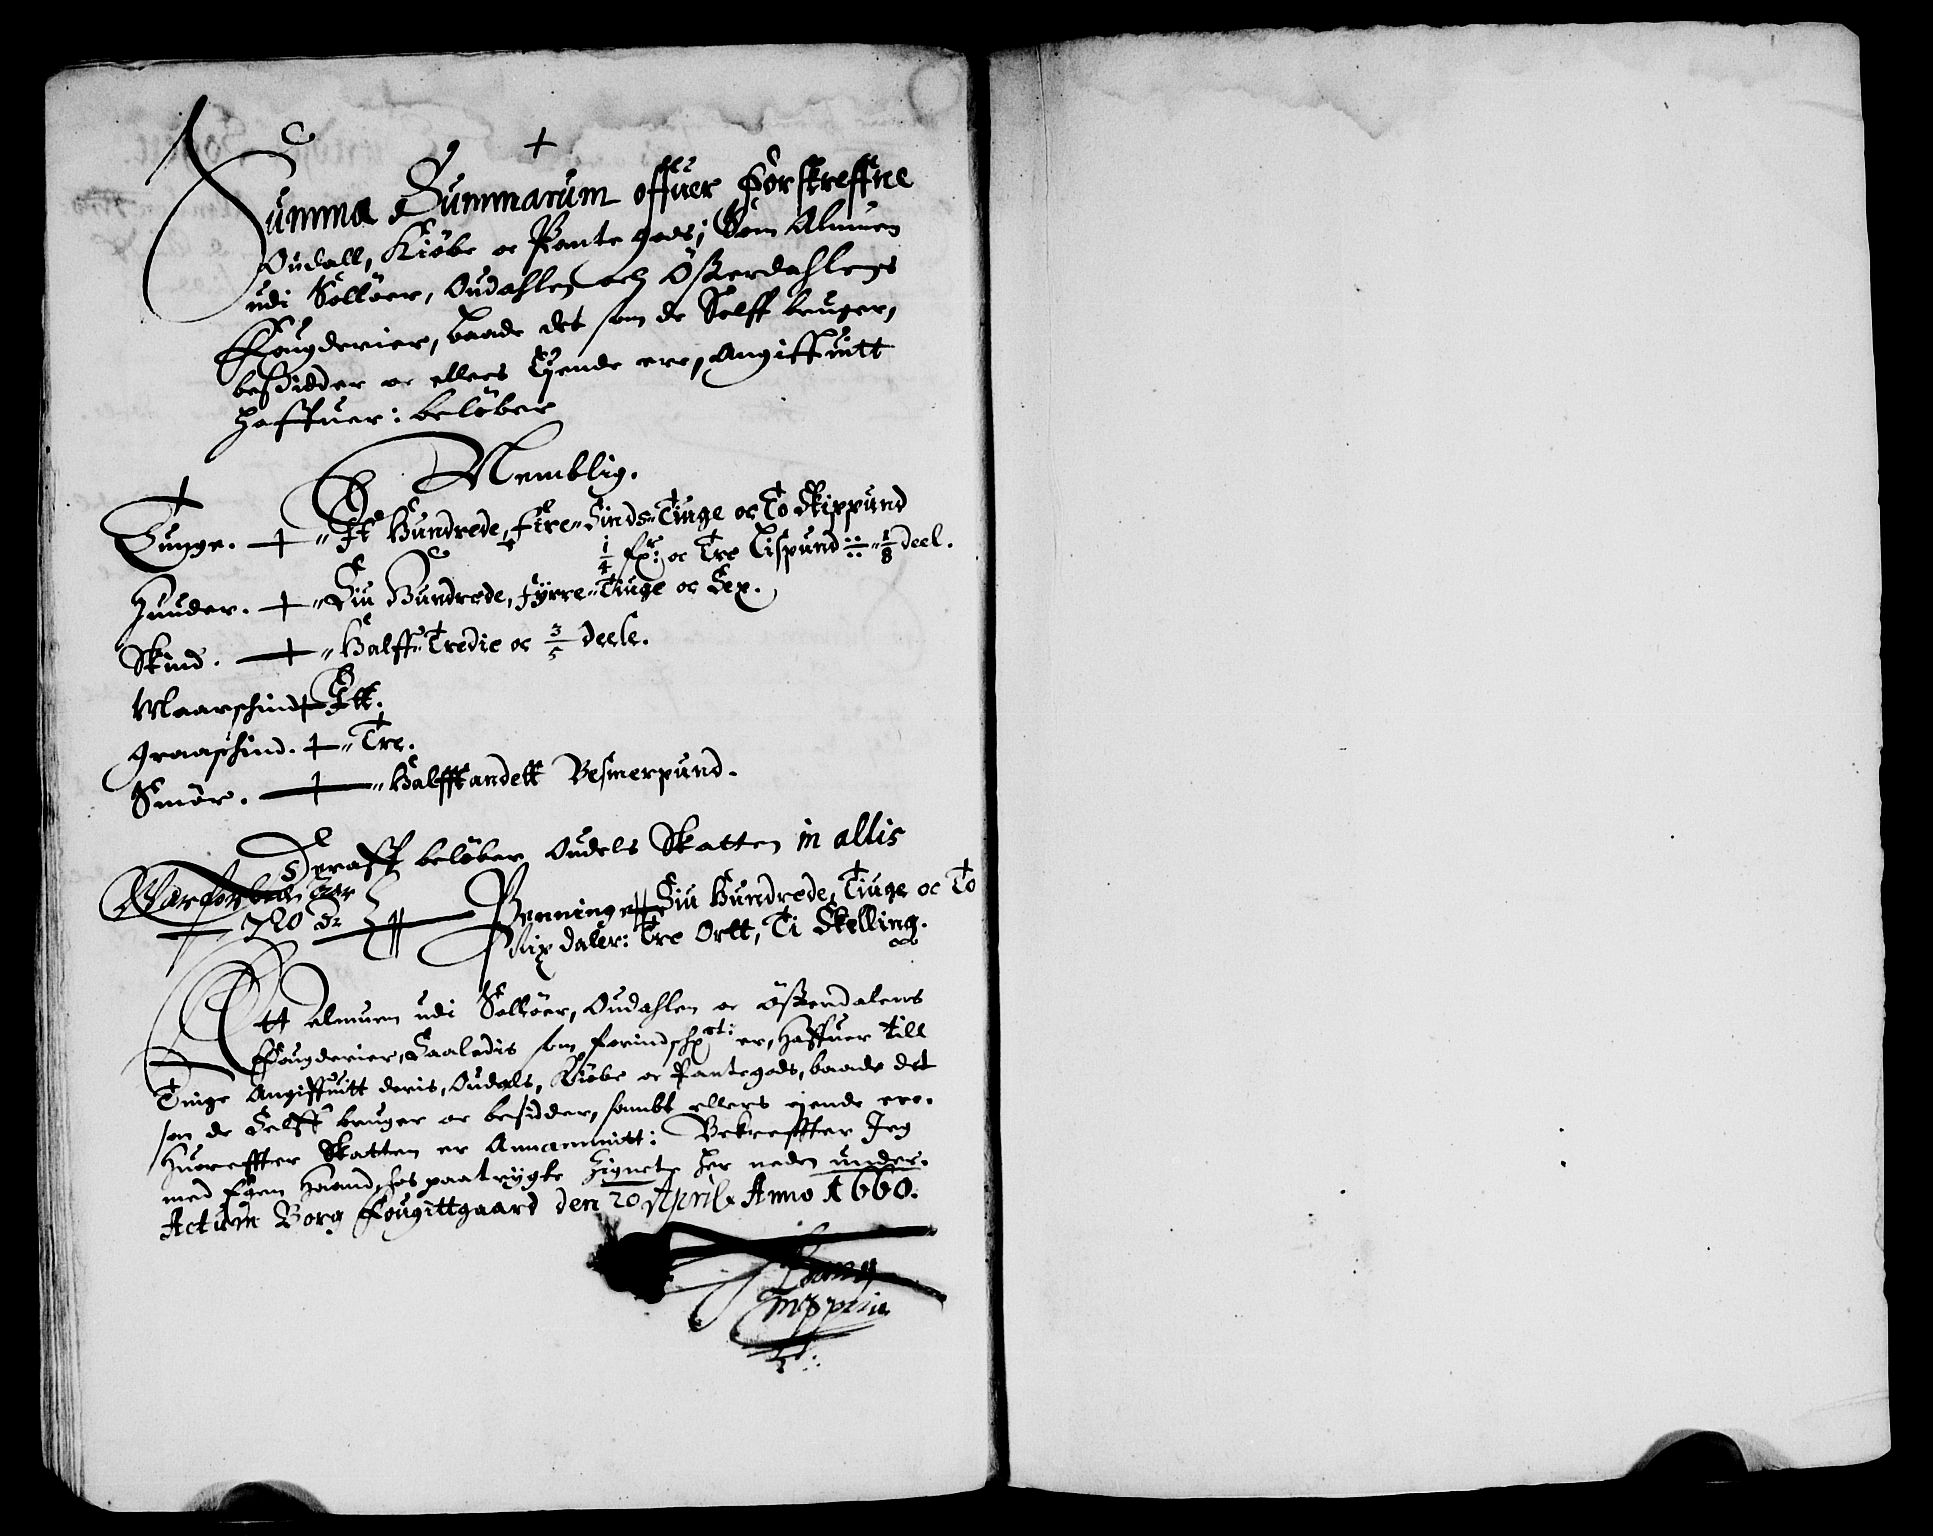 Summa Summarum offuer Forskreffne
Oudall, Kiöbe oc Pante gods; Som Almuen
udi Sollöer, Oudahlen och Österdahlens
Fougderier, baade det som de Selff bruger,
besidder oc ellers Ejende ere, Angiffuitt
haffuer: belöber
Nemblig.
Tunge. Et Hundrede, Fire Sinds Tiuge oc To Skippund
1/4 oc Tre Lispund 1/8 deel.
Huuder. Siu Hundrede, fÿrre Tiuge oc Sex.
Skind. Halff Tredie oc 3/5 deele.
Maarschind Ett.
Graaschind. Tre.
Smör. Halfftandett Besmerpund.
Deraff belöber Oudels Skatten in allis
Penninge Siu Hundrede, Tiuge oc To
720 Rix daler: Tre Ortt, Ti Skelling.
Att Almuen udi Sollöer, Oudahlen oc Österdalens
Fougderier, Saaledis som forindschr: er, Haffuer till
Tinge Angiffuitt deris, Oudels, Kiöbe oc Pantegods, baade det
som de Selff bruger oc besidder, sambt ellers ejende ere.
Huoreffter Skatten er Annammitt: Bekreffter Jeg
med Egen Haand, hos paatrygte Zignete her neden under.
Actum Borg Fougittgaard den 20 April Anno 1660.